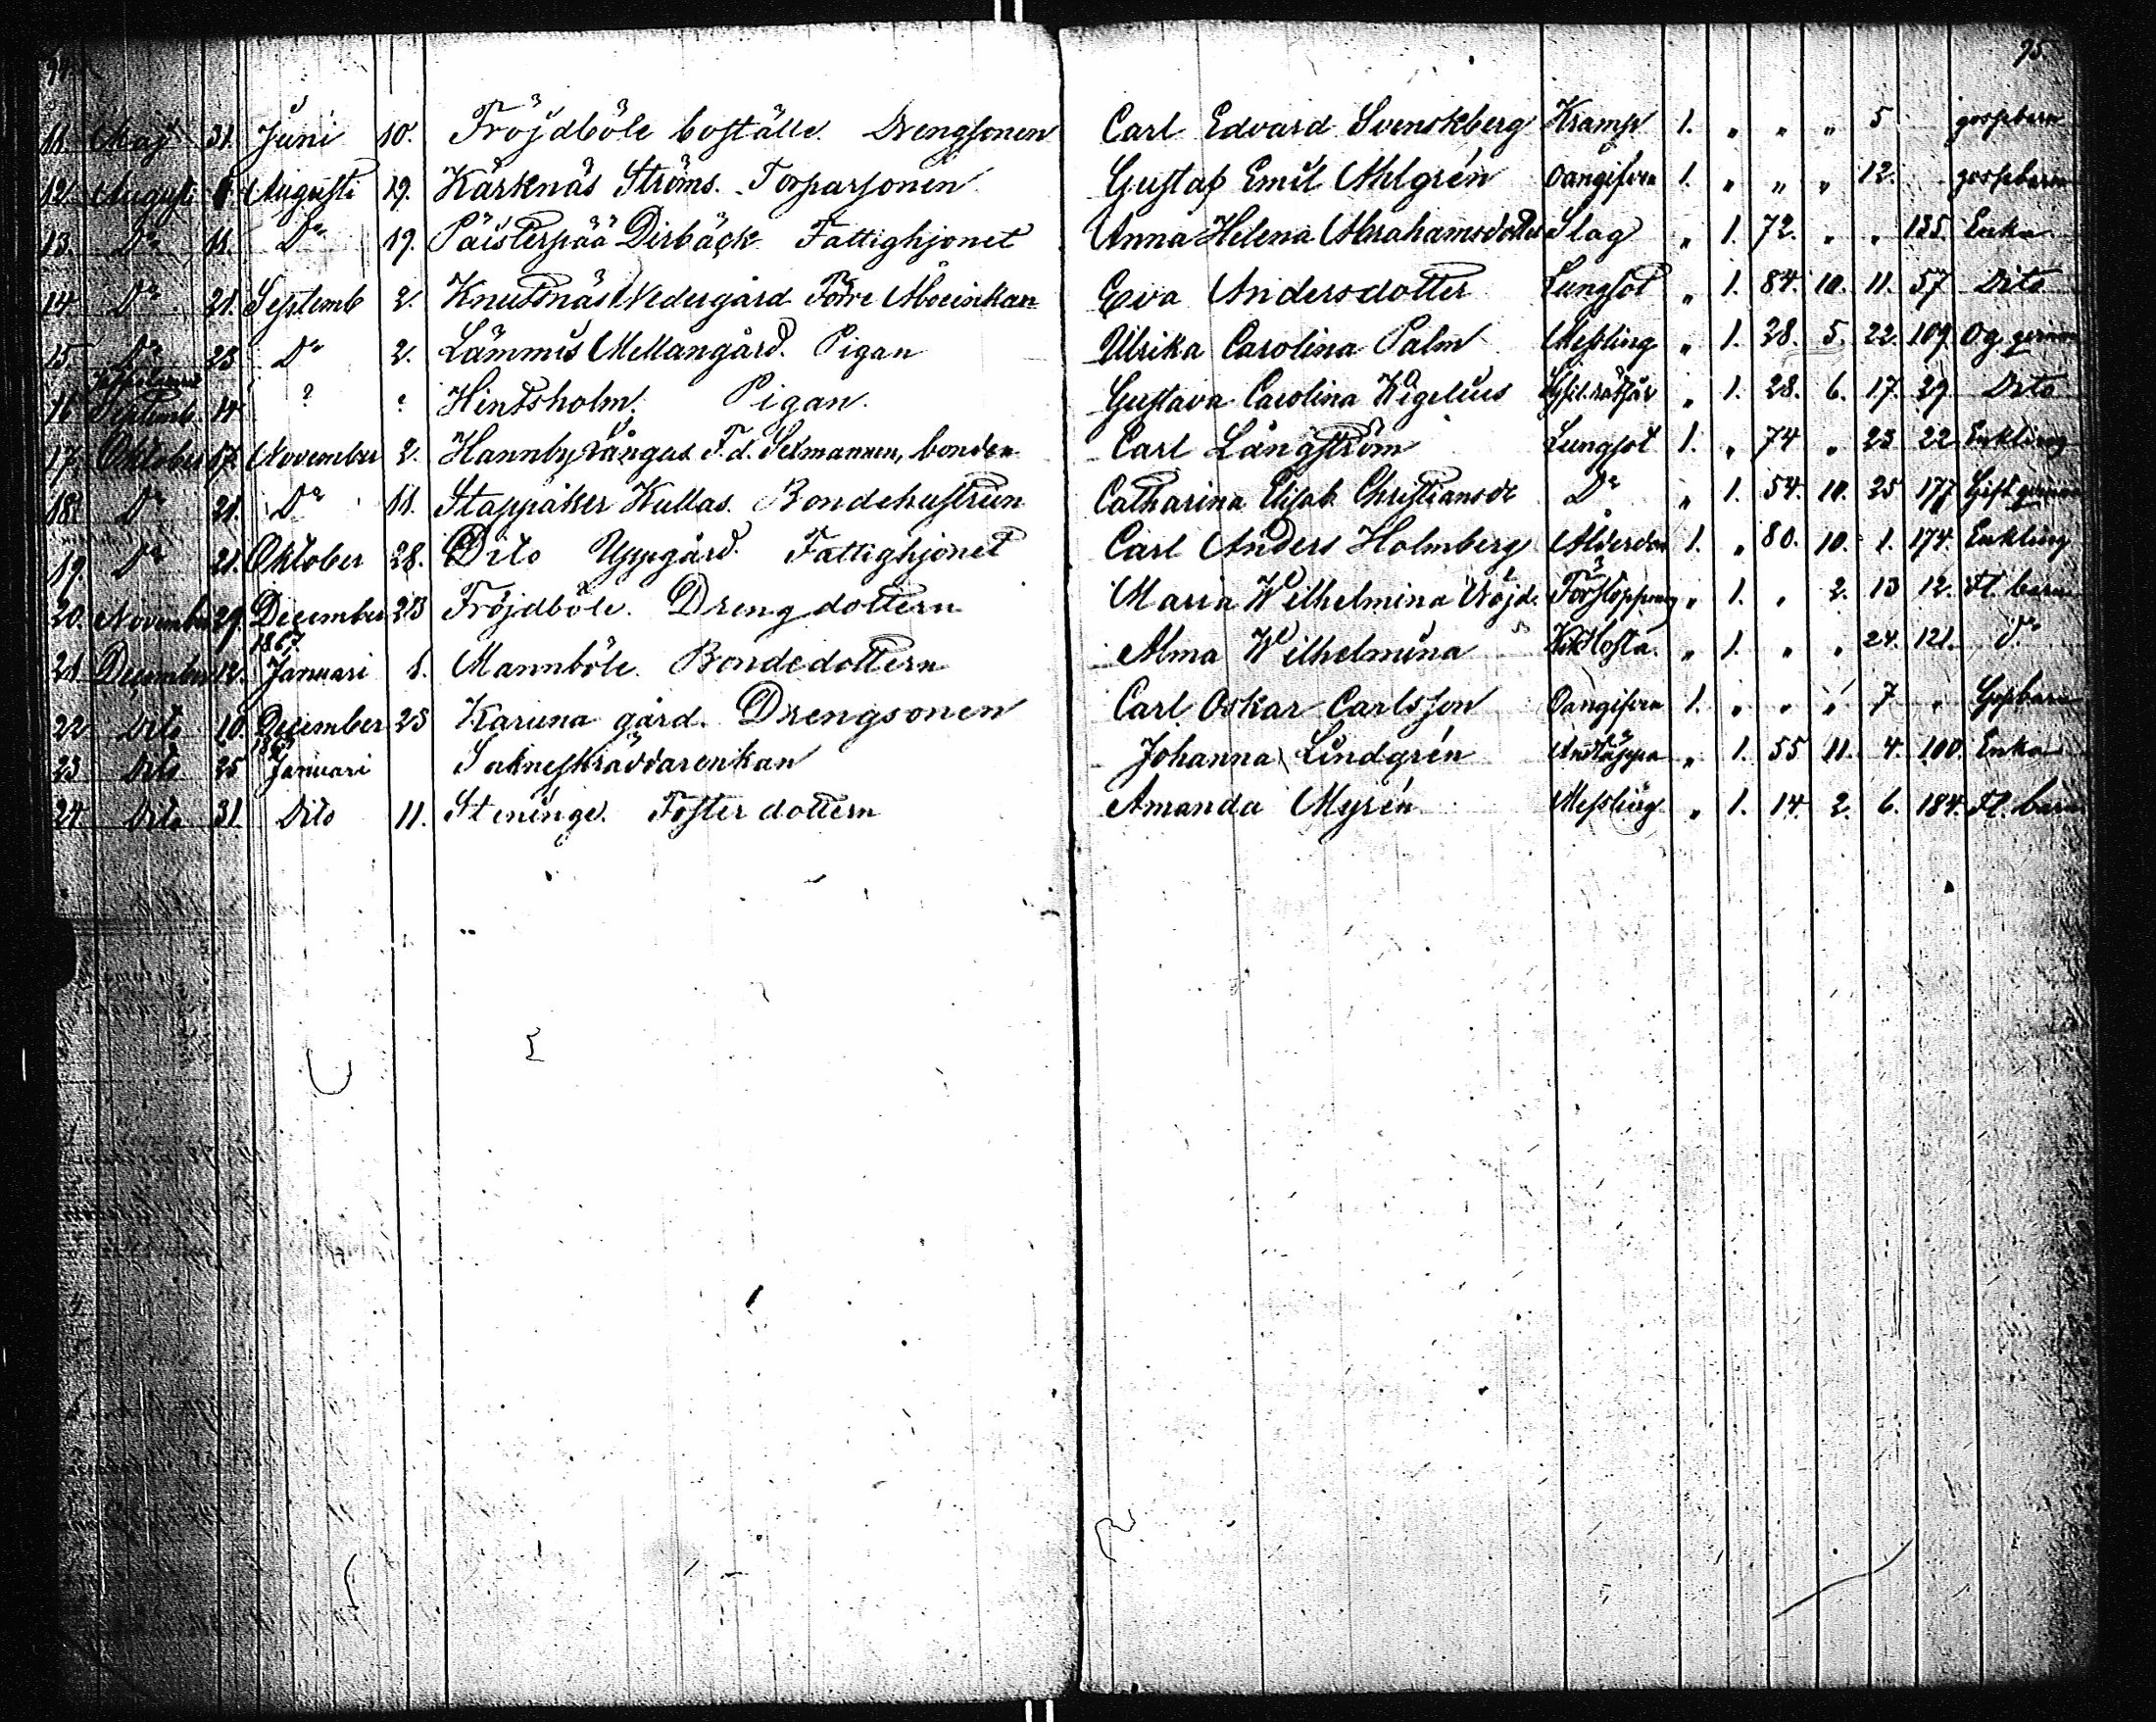 94. 95.
11. Maj 31. Juni 10. Fröjdböle boställe. Drengsonen Carl Edvard Svenskberg Kramp 1. " " " 5 gossebarn
12. Augusti Augusti 19. Kärknäs Ströms. Torparsonen Gustaf Emil Ahlgrén Oangifven 1. " " " 12. gossebarn
13. Do 11. Do 19. Päisterpää Dirbäck Fattighjonet Anna Helena Abrahamsdotter Slag " 1. 72. " " 135. Enka
14. Do 21. Septemb 2. Knutsnäs Nedergård Förre Åboenkan Eva Andersdotter Lungsot " 1. 84. 10. 11. 57 Dito
15. Do 23 Do 2. Lämmis Mellangård. Pigan Ulrika Carolina Palm Messling " 1. 28. 5. 22. 109. Og. qvinna
16 Septemb. 14 ? ? Hintsholm. Pigan. Gustava Carolina Wigelius " 1. 28. 6. 17. 29. Dito
17. Oktober 17. November 2. Hannby Långas F.d. Sexmannen, bonden Carl Långström Lungsot 1. " 74 " 23 22 Enkling
18. Do 21. Do 11. Stappåker Kullas. Bondehustrun Catharina Elisab. Christiansdr Do " 1. 54. 10. 25 177 Gift qvinna
19. Do 21. Oktober 28. Dito Uppgård. Fattighjonet Carl Anders Holmberg Ålderdom 1. " 80. 10. 1. 174. Enkling
20. November 29. December 23 Fröjdböle. Dreng dottern Maria Wilhelmina Fröjd. Förstoppning " 1. " 2. 13 12. Fl. barn
21 December 12. 1867 Januari 1. Mannböle. Bondedottern Alma Wilhelmina Kikhosta. " 1. " " 24. 121. Do
22 Dito 10. December 23 Karuna gård. Drengsonen Carl Oskar Carlsson Oangifven 1. " " " 7 " Gossbarn
23 Dito 25 1867 Januari Sakneskräddarenkan Johanna Lindgrén Andtäppa " 1. 55 11. 4. 100. Enka
24. Dito 31. Dito 11. Steninge. Foster dottern Amanda Myrén Messling " 1. 14. 2. 6. 184. Fl. barn